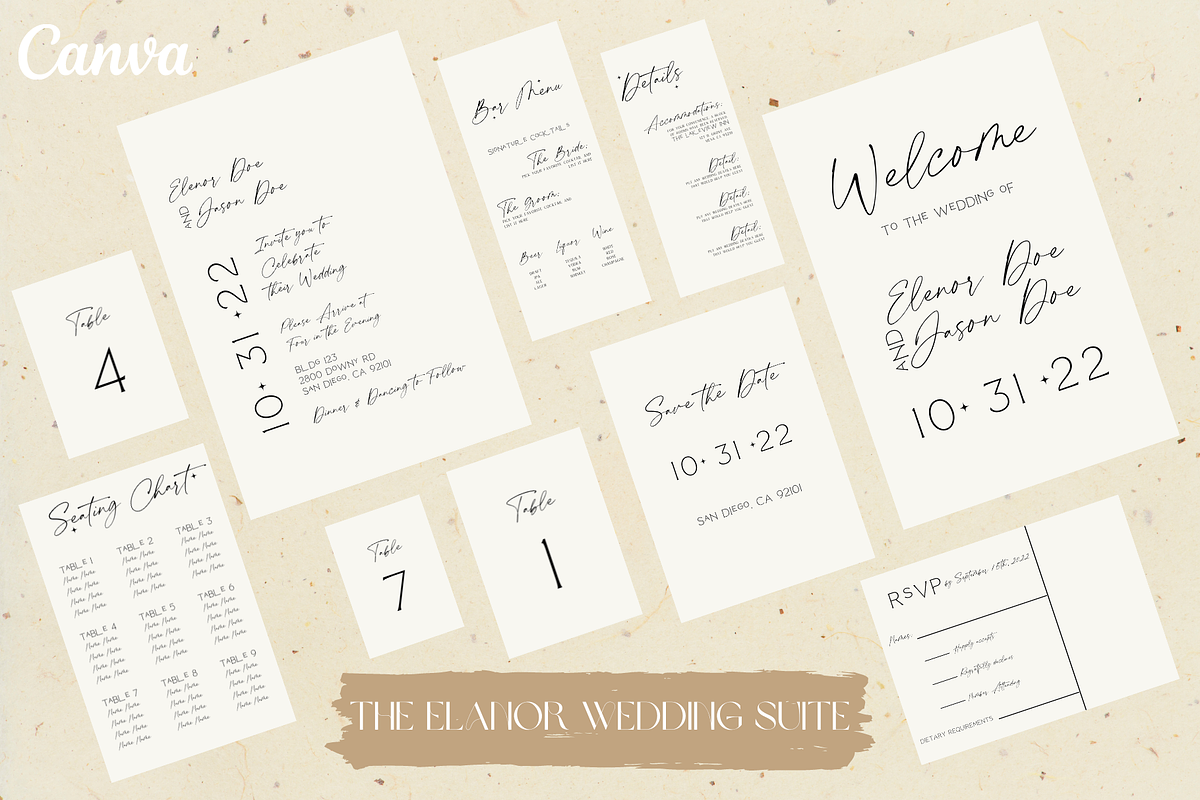 Canva
Elenor Doe
AND
Jason Doe
Invite you to
Celebrate
their Wedding
10 31 22
Please Arrive at
Four in the Evening
BLDG 123
2800 DOWNY RD
SAN DIEGO, CA 92101
Dinner & Dancing to Follow
Bar Menu
SIGNATURE COCKTAILS
The Bride:
PICK YOUR FAVORITE COCKTAIL AND
LIST IT HERE
The Groom:
PICK YOUR FAVORITE COCKTAIL AND
LIST IT HERE
Beer
Liquor
Wine
DRAFT
IPA
ALE
LAGER
TEQUILA
VODKA
RUM
WHISKEY
WHITE
RED
ROSE
CHAMPAGNE
Details
Accommodations:
FOR YOUR CONVENIENCE A BLOCK
OF ROOMS HAVE BEEN RESERVED
THE LAKEVIEW INN
Detail:
PUT ANY WEDDING DETAILS HERE
THAT WOULD HELP YOU GUEST
Detail:
PUT ANY WEDDING DETAILS HERE
THAT WOULD HELP YOU GUEST
Detail:
PUT ANY WEDDING DETAILS HERE
THAT WOULD HELP YOU GUEST
Welcome
TO THE WEDDING OF
Elenor Doe
AND
Jason Doe
10 31 22
Table
4
Save the Date
10 31 22
SAN DIEGO, CA 92101
Seating Chart
TABLE 1
Name Name
Name Name
Name Name
Name Name
TABLE 2
Name Name
Name Name
Name Name
Name Name
TABLE 3
Name Name
Name Name
Name Name
Name Name
TABLE 4
Name Name
Name Name
Name Name
Name Name
TABLE 5
Name Name
Name Name
Name Name
Name Name
TABLE 6
Name Name
Name Name
Name Name
Name Name
TABLE 7
Name Name
Name Name
Name Name
Name Name
TABLE 8
Name Name
Name Name
Name Name
Name Name
TABLE 9
Name Name
Name Name
Name Name
Name Name
Table
7
Table
1
RSVP by September, 15th, 2022
Names:
Happily accepts
Regretfully declines
Number Attending
DIETARY REQUIREMENTS
THE ELANOR WEDDING SUITE